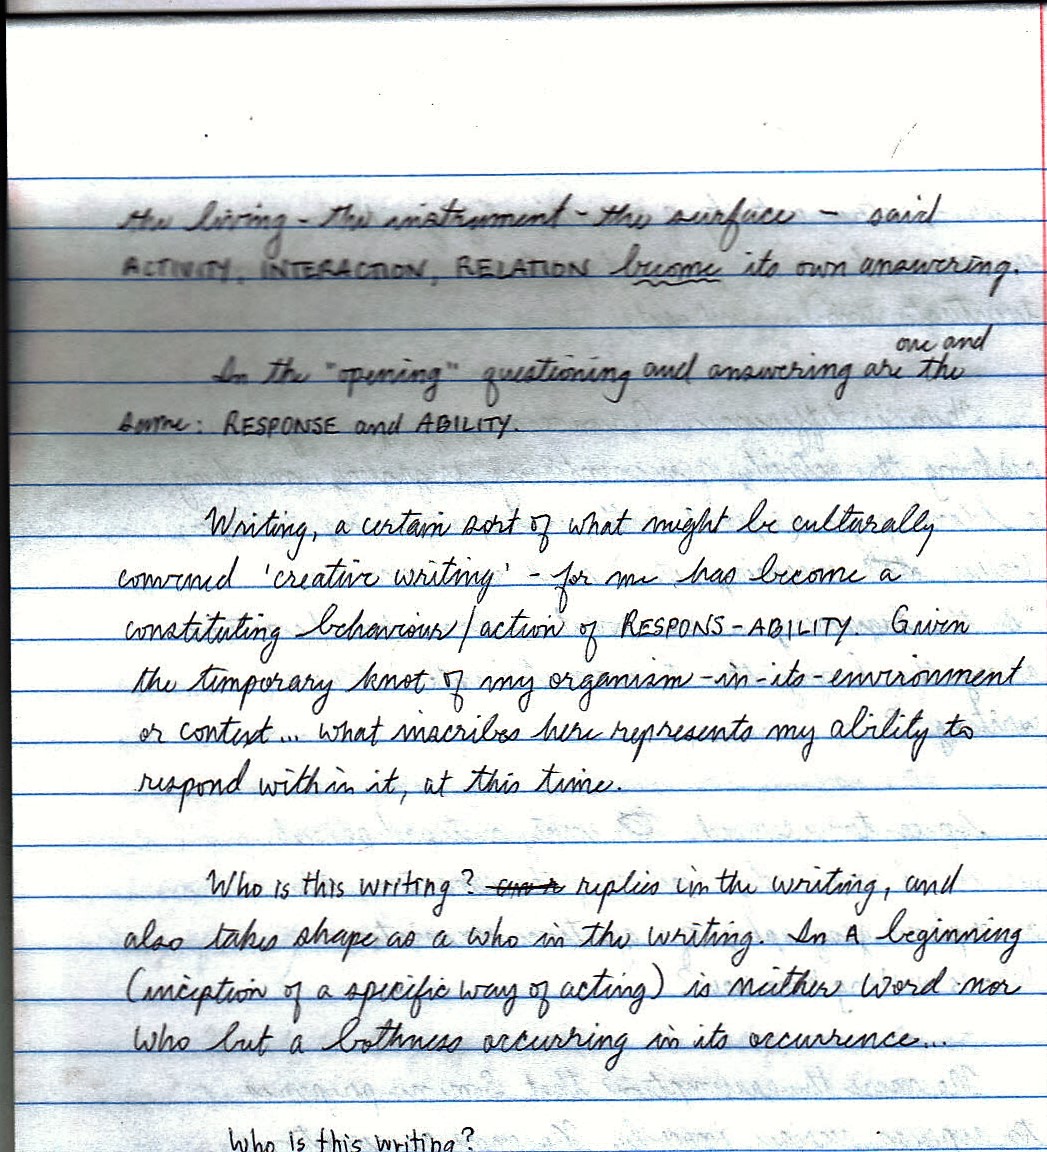 the living - the instrument - the surface - said
ACTIVITY, INTERACTION, RELATION become its own answering.
one and
In the "opening" questioning and answering are the
same: RESPONSE and ABILITY.
Writing, a certain sort of what might be culturally
convened 'creative writing' - for me has become a
constituting behaviour/action of RESPONS-ABILITY. Given
the temporary knot of my organism-in-its-environment
or context... what inscribes here represents my ability to
respond within it, at this time.
Who is this writing? replies in the writing, and
also takes shape as a who in the writing. In A beginning
(inception of a specific way of acting) is neither word nor
who but a bothness occurring in its occurrence...
Who is this writing?